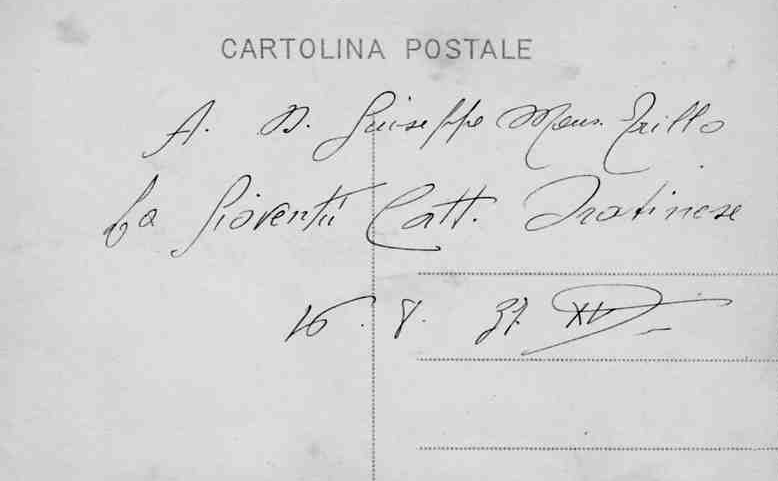 CARTOLINA POSTALE
A. D. Giuseppe Mons. Trillo
La Gioventù Catt. Oratinese
16. 8. 37. XV